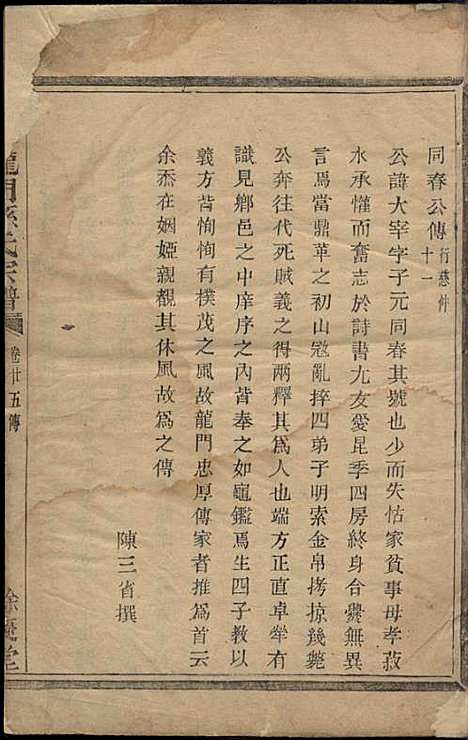 同春公傳行慈仲十一
公諱大宰字子元同春其號也少而失怙家貧事母孝菽
水承懽而奮志於詩書尤友愛昆季四房終身合爨無異
言焉當鼎革之初山寇亂捽四弟子明索金帛拷掠幾斃
公奔往代死賊義之得兩釋其為人也端方正直卓犖有
識見鄉邑之中庠序之內皆奉之如龜鑑焉生四子教以
義方皆恂恂有樸茂之風故龍門忠厚傳家者推為首云
余忝在姻婭親覩其休風故為之傳
陳三省撰
龍門孫氏宗譜
卷廿五傳
餘慶堂